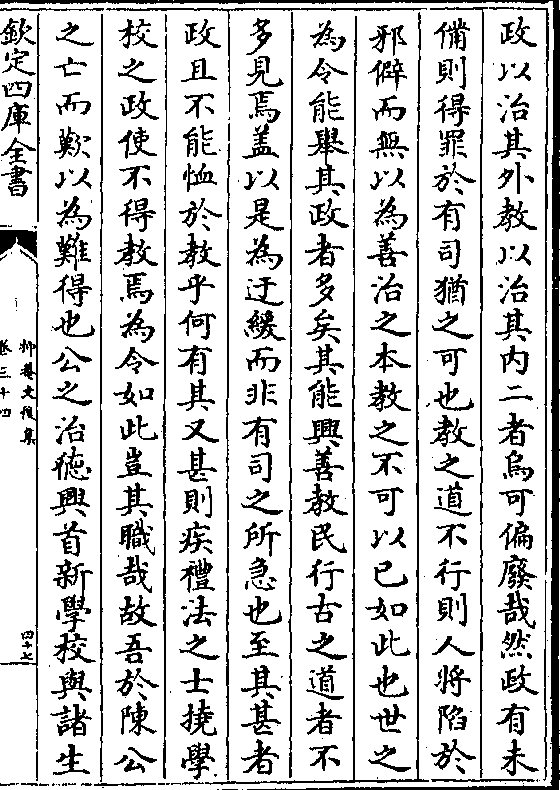 政以治其外教以治其内二者烏可偏廢哉然政有未
備則得罪於有司猶之可也教之道不行則人將陷於
邪僻而無以為善治之本教之不可以已如此也世之
為令能舉其政者多矣其能興善教民行古之道者不
多見焉盖以是為迂緩而非有司之所急也至其甚者
政且不能恤於教乎何有其又甚則疾禮法之士撓學
校之政使不得教焉為令如此豈其職哉故吾於陳公
之亡而歎以為難得也公之治德興首新學校與諸生
欽定四庫全書
抑菴文後集
卷三十四
四十七